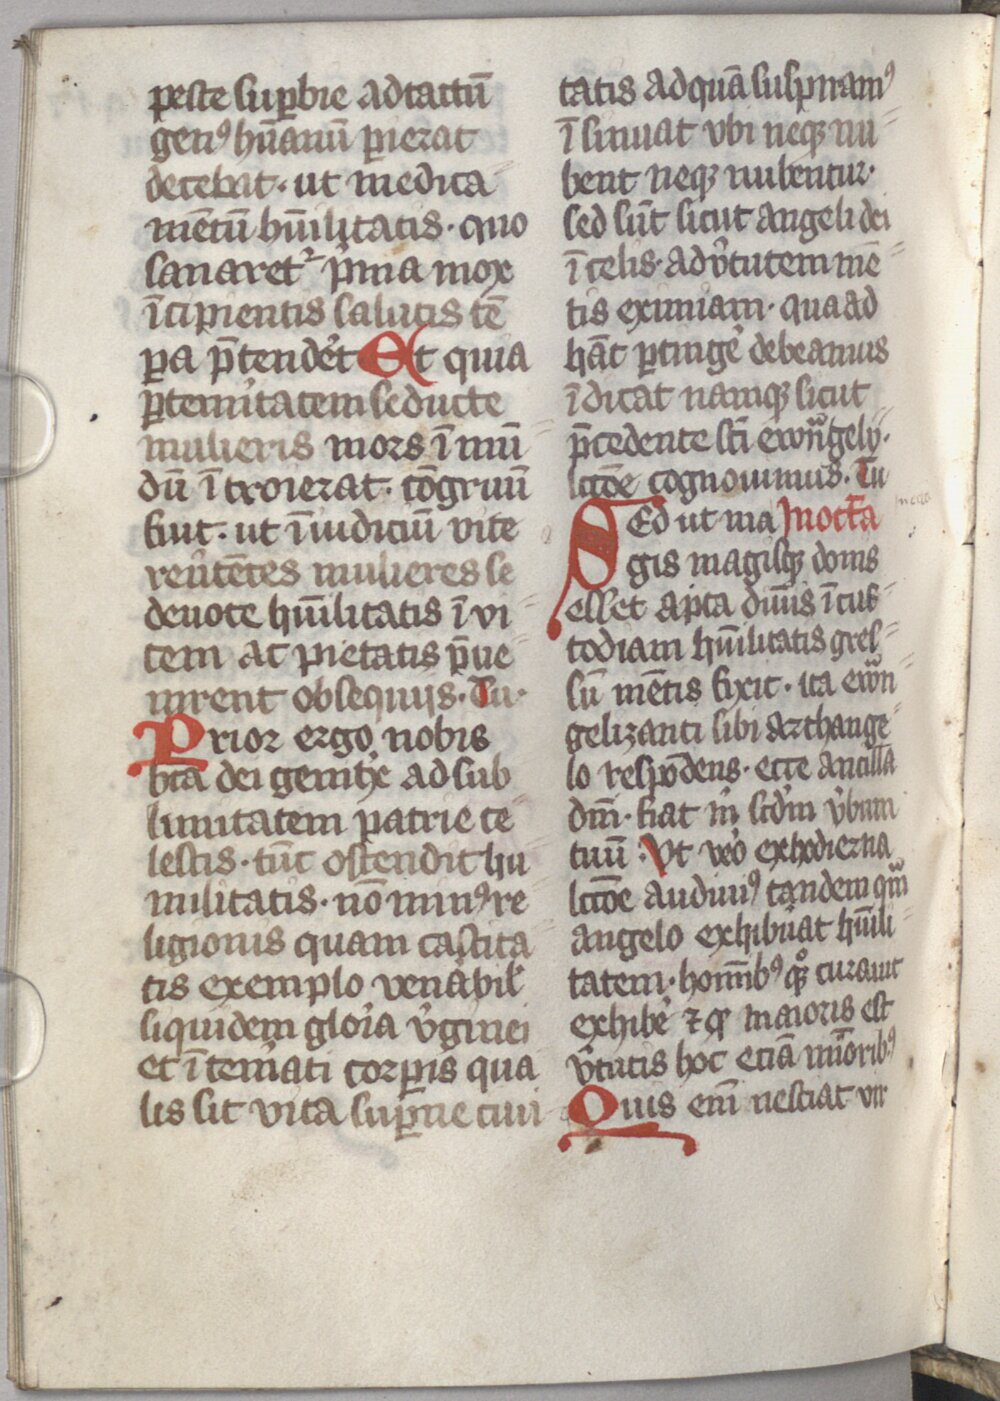 peste suꝑbie ad tactū
genꝰ hūanū ꝑierat
decebat · ut medica
mētū hūilitatis · quo
sanaret᷑ pͥma mox
īcipientis salutis tē
pa p̄tendēt Et quia
ꝑ temitatem seducte
mulieris mors ī mū
dū ītroierat · cōgruū
fuit · ut ī iudiciū vite
reūtētes mulieres se
deuote hūilitatis ī vi
cem ac pietatis p̄ue
nirent obsequijs · Tu ·
Prior ergo nobis
bt̄a dei genitͥx ad sub
limitatem patrie ce
lestis · tūc ostendit hu
militatis · nō minꝰ re
ligionis quam castita
tis exemplo venābil
liquidem gloria v̄ginei
et ītemiati corꝑis qua
lis sit vita suꝑne ciui
tatis ad quā suspiramꝰ
īsinuat vbi neqꝫ nu
bent neqꝫ nubentur ·
sed sūt sicut angeli dei
ī celis · ad v̄tutem mē
tis eximiam · qua ad
hāc ꝑtingē debeamus
īdicat namqꝫ sicut
p̄cedente sc̄i ewāgelij ·
lcc̄oe cognouimus · Tu
Sed ut ma In octā
gis magisqꝫ donis
esset apta diuīs īcus
todiam hūilitatis gres
sū mētis fixit · ita ewā
gelizanti sibi archange
lo respōdens · ecce ancilla
dn̄i · fiat m̄ scdm v̄bum
tuū · Vt vēo ex hodierna
lcc̄oe audiuiꝰ tandem qm̄
angelo exhibūat hūili
tatem · homībꝰ qꝫ curauit
exhibē ⁊ qͥ maioris est
v̄tutis hoc eciā mīoribꝰ
Quis em̄ nesciat vir